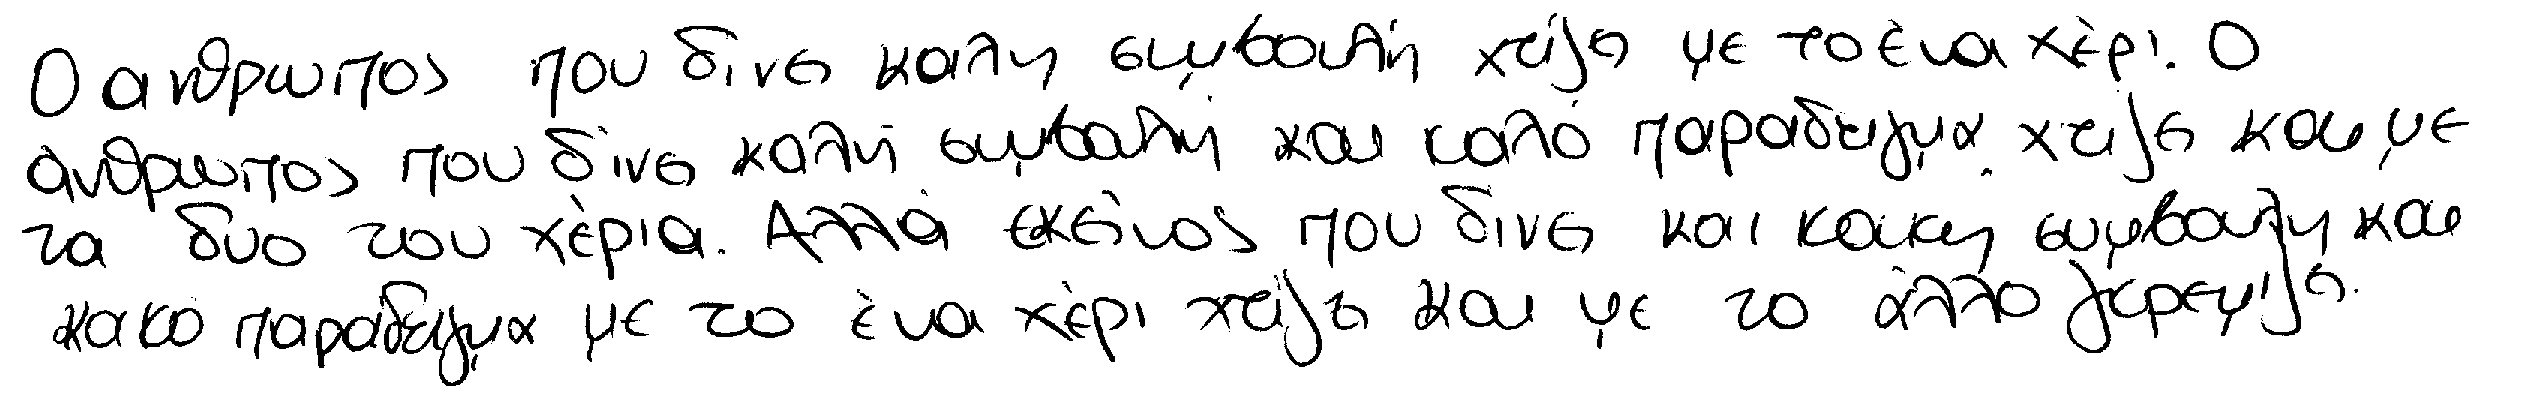 Ο ανθρωπος που δινει καλη συμβουλή χτίζει με το ένα χέρι. Ο
άνθρωπος που δίνει καλή συμβουλή και καλό παραδειγμα χτιζει και με
τα δυο του χέρια. Αλλά εκείνος που δίνει και κακη συμβουλη και
κακό παράδειγμα με το ένα χέρι χτίζει και με το άλλο γκρεμιζει.